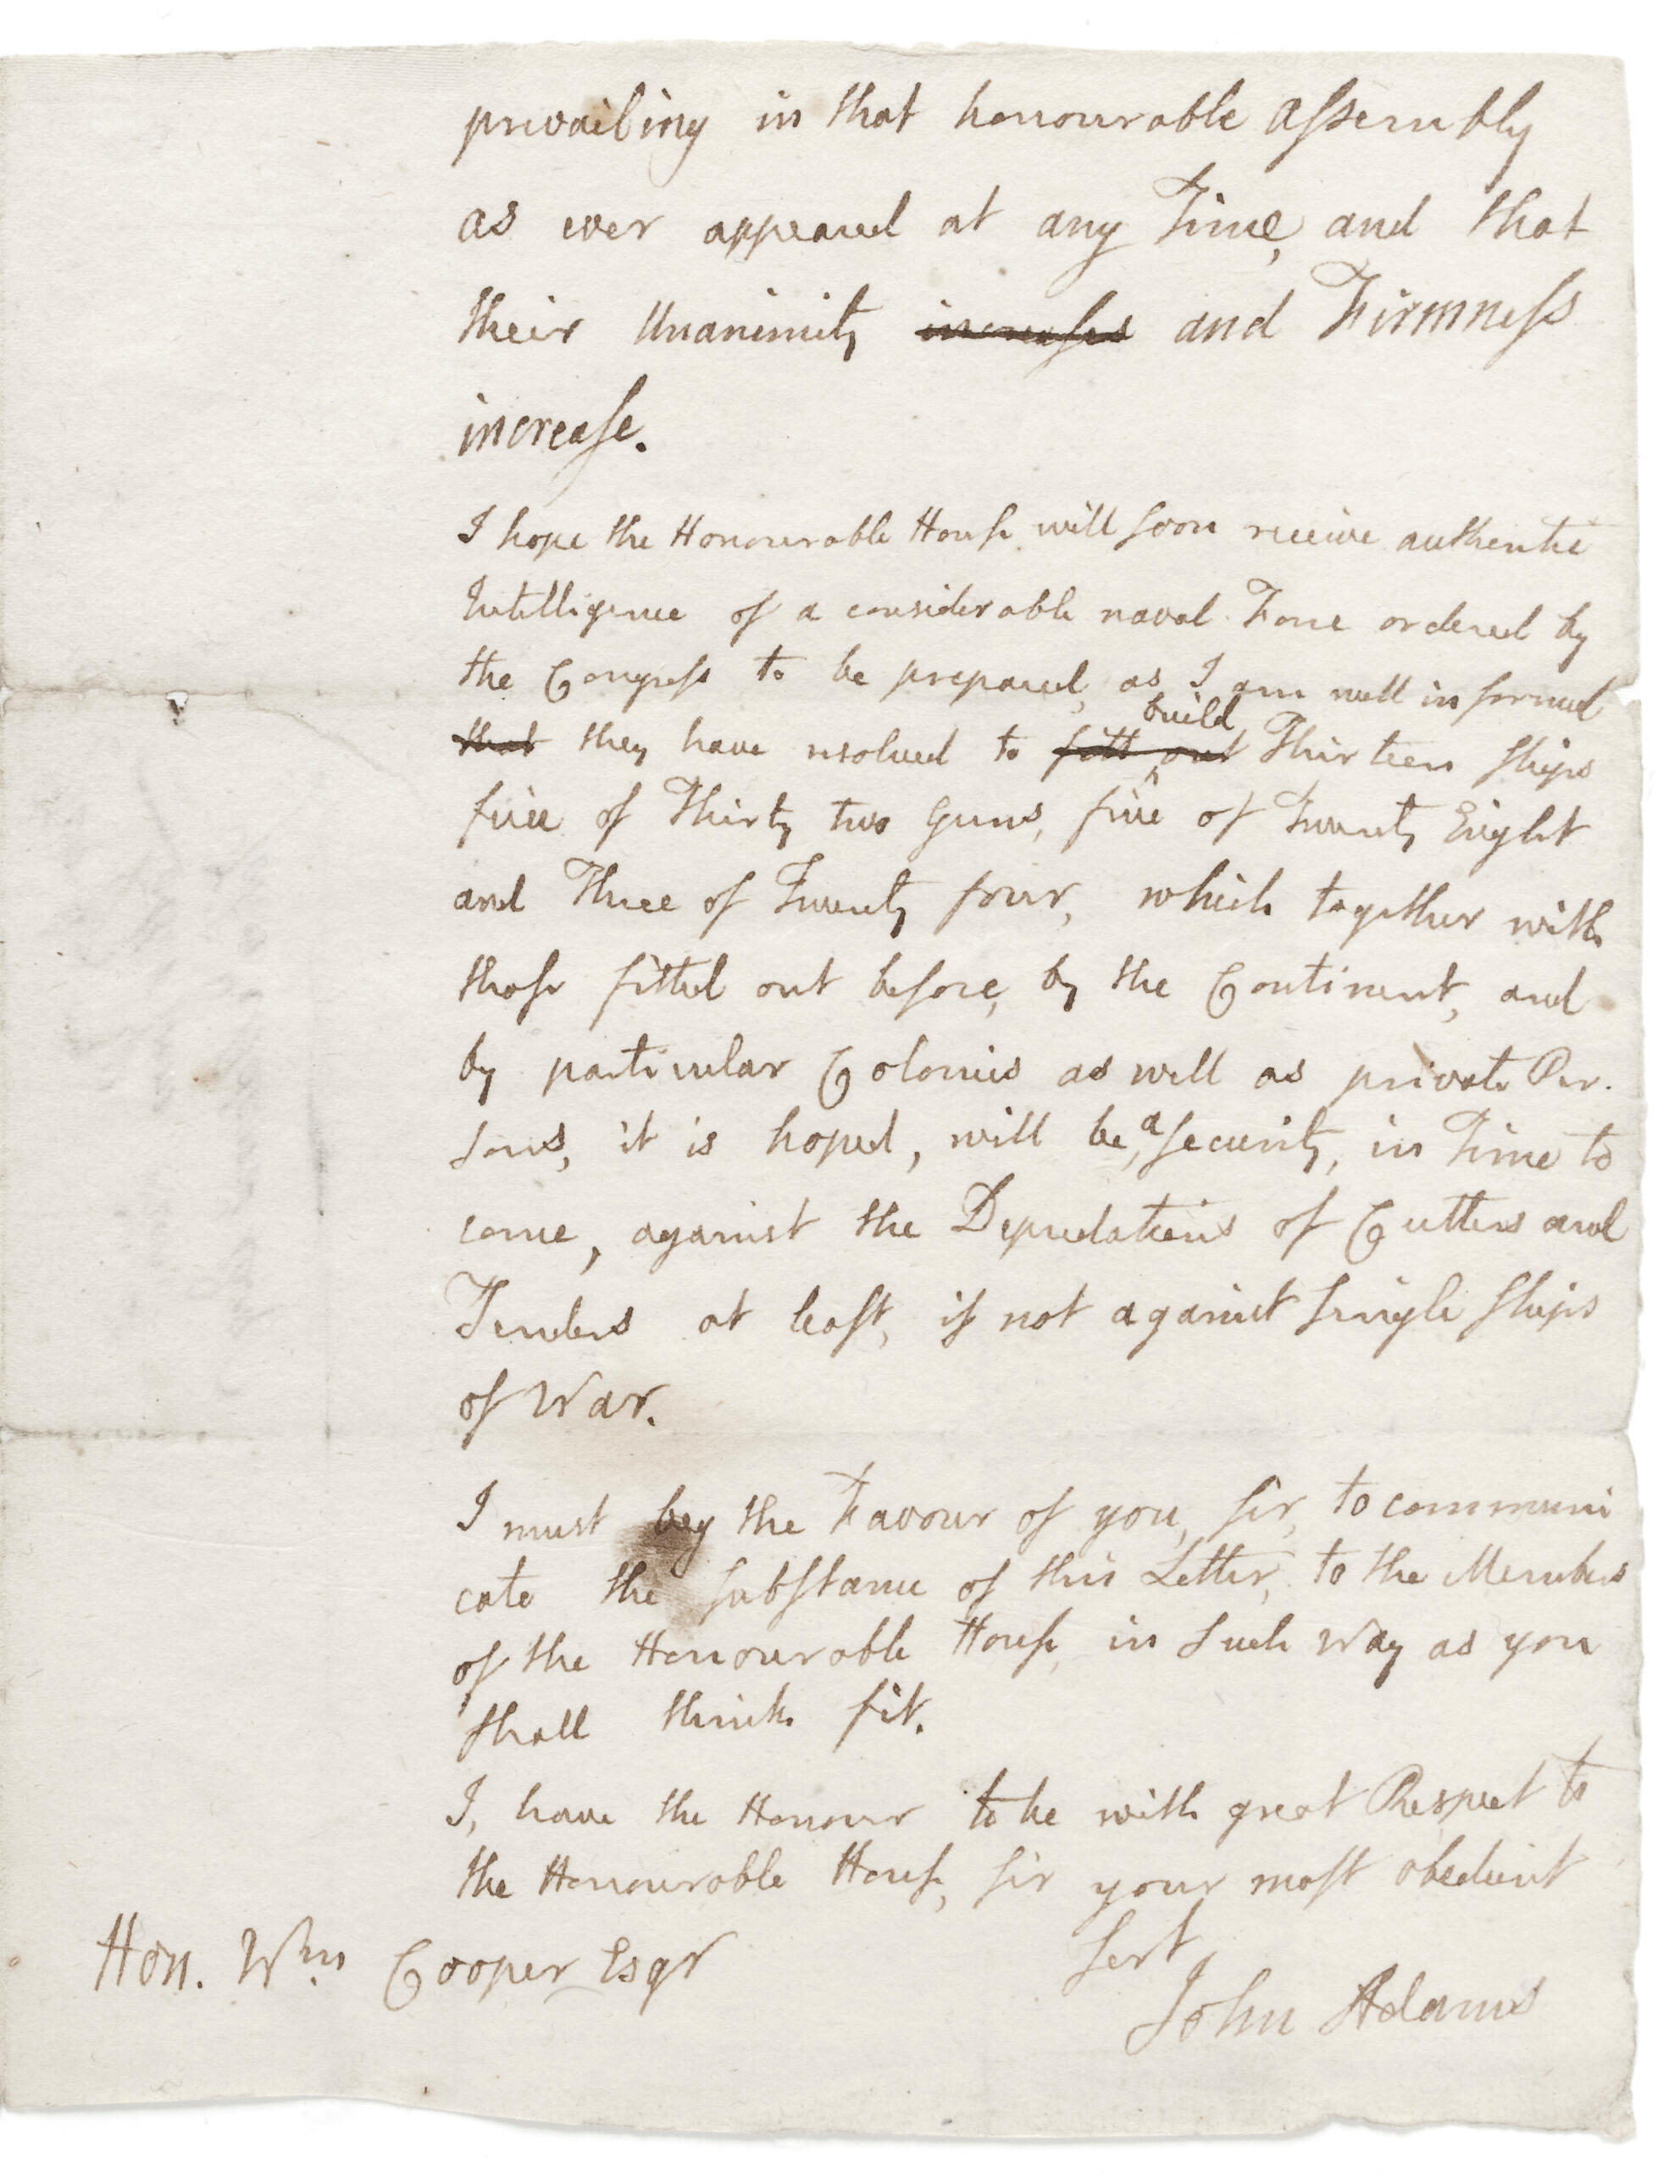 prevailing in that honourable assembly
as ever appeared at any Time, and that
their Unanimity increases and Firmness
increase.
I hope the Honourable House will soon receive authentic
Intelligence of a considerable naval Force ordered by
the Congress to be prepared, as I am well informed
build
that they have resolved to fitt out Thirteen ships
five of Thirty two Guns, five of Twenty Eight
and Three of Twenty four, which together with
those fitted out before, by the Continent, and
by particular Colonies as well as private Per-
sons, it is hoped, will be, a security, in Time to
come, against the Depredations of Cutters and
Tenders at least, if not against single ships
of War.
I must beg the Favour of you, sir, to communi
cate the substance of this Letter, to the Members
of the Honourable House, in such Way as you
shall think fit.
I, have the Honour to be with great Respect to
the Honourable House, sir your most obedient
sert
Hon. Wm. Cooper Esqr
John Adams